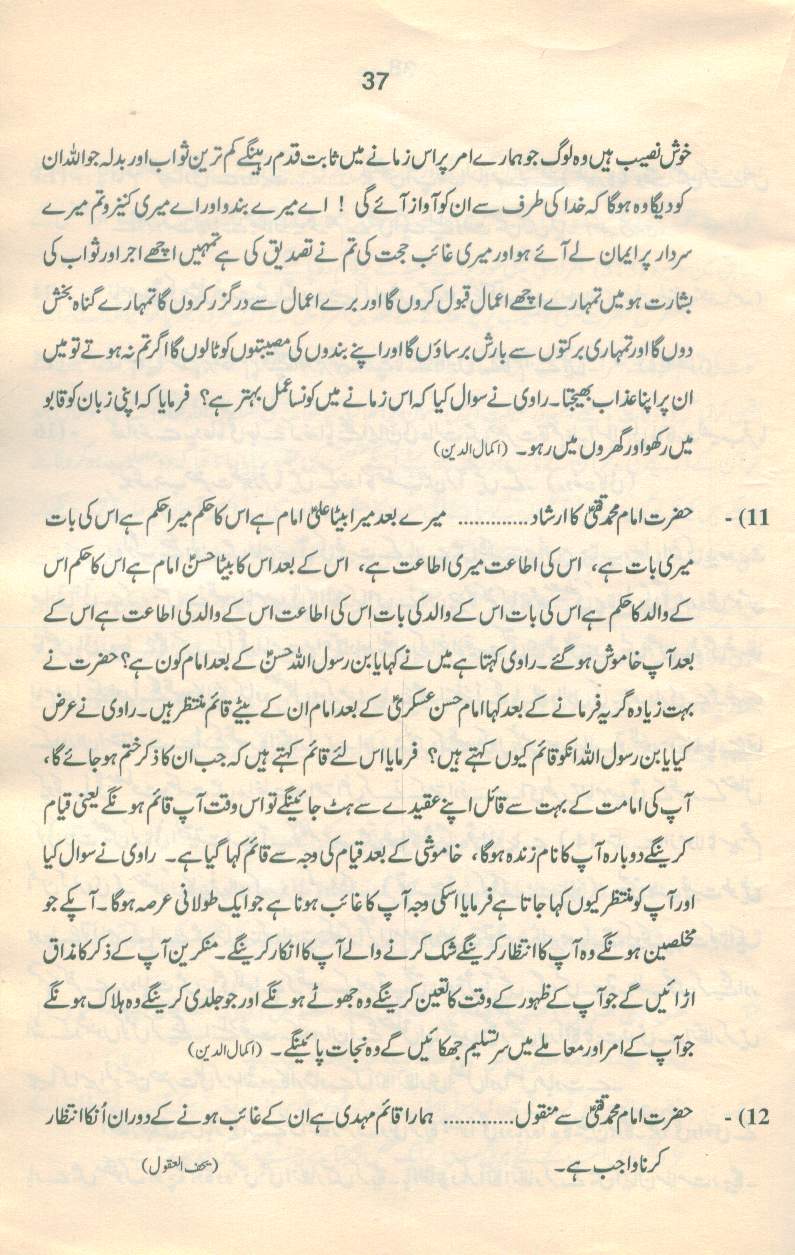 37
خوش نصیب ہیں وہ لوگ جو ہمارے امر پر اس زمانے میں ثابت قدم رہینگے کم ترین ثواب اور بدلہ جو اللہ ان
کو دیگا وہ ہوگا کہ خدا کی طرف سے ان کو آواز آئے گی ! اے میرے بندو اور اے میری کنیزو تم میرے
سردار پر ایمان لے آئے ہو اور میری غائب حجت کی تم نے تصدیق کی ہے تمہیں اچھے اجر اور ثواب کی
بشارت ہو میں تمہارے اچھے اعمال قبول کروں گا اور برے اعمال سے درگزر کروں گا تمہارے گناہ بخش
دوں گا اور تمہاری برکتوں سے بارش برساؤں گا اور اپنے بندوں کی مصیبتوں کو ٹالوں گا اگر تم نہ ہوتے تو میں
ان پر اپنا عذاب بھیجتا۔ راوی نے سوال کیا کہ اس زمانے میں کونسا عمل بہتر ہے؟ فرمایا کہ اپنی زبان کو قابو
میں رکھو اور گھروں میں رہو۔ (اکمال الدین)
11) - حضرت امام محمد تقیؑ کا ارشاد............ میرے بعد میرا بیٹا علیؑ امام ہے اس کا حکم میرا حکم ہے اس کی بات
میری بات ہے، اس کی اطاعت میری اطاعت ہے، اس کے بعد اس کا بیٹا حسنؑ امام ہے اس کا حکم اس
کے والد کا حکم ہے اس کی بات اس کے والد کی بات اس کی اطاعت اس کے والد کی اطاعت ہے اس کے
بعد آپ خاموش ہو گئے۔ راوی کہتا ہے میں نے کہا یا بن رسول اللہ حسنؑ کے بعد امام کون ہے؟ حضرت نے
بہت زیادہ گریہ فرمانے کے بعد کہا امام حسن عسکریؑ کے بعد امام ان کے بیٹے قائم منتظر ہیں۔ راوی نے عرض
کیا یا بن رسول اللہ انکو قائم کیوں کہتے ہیں؟ فرمایا اس لئے قائم کہتے ہیں کہ جب ان کا ذکر ختم ہو جائے گا،
آپ کی امامت کے بہت سے قائل اپنے عقیدے سے ہٹ جائینگے تو اس وقت آپ قائم ہونگے یعنی قیام
کرینگے دوبارہ آپ کا نام زندہ ہوگا، خاموشی کے بعد قیام کی وجہ سے قائم کہا گیا ہے۔ راوی نے سوال کیا
اور آپ کو منتظر کیوں کہا جاتا ہے فرمایا اسکی وجہ آپ کا غائب ہونا ہے جو ایک طولانی عرصہ ہوگا۔ آپکے جو
مخلصین ہونگے وہ آپ کا انتظار کرینگے شک کرنے والے آپ کا انکار کرینگے۔ منکرین آپ کے ذکر کا مذاق
اڑائیں گے جو آپ کے ظہور کے وقت کا تعین کرینگے وہ جھوٹے ہونگے اور جو جلدی کرینگے وہ ہلاک ہونگے
جو آپ کے امر اور معاملے میں سر تسلیم جھکائیں گے وہ نجات پائینگے۔ (اکمال الدین)
12) - حضرت امام محمد تقیؑ سے منقول............ ہمارا قائم مہدی ہے ان کے غائب ہونے کے دوران اُنکا انتظار
کرنا واجب ہے۔ (تحف العقول)